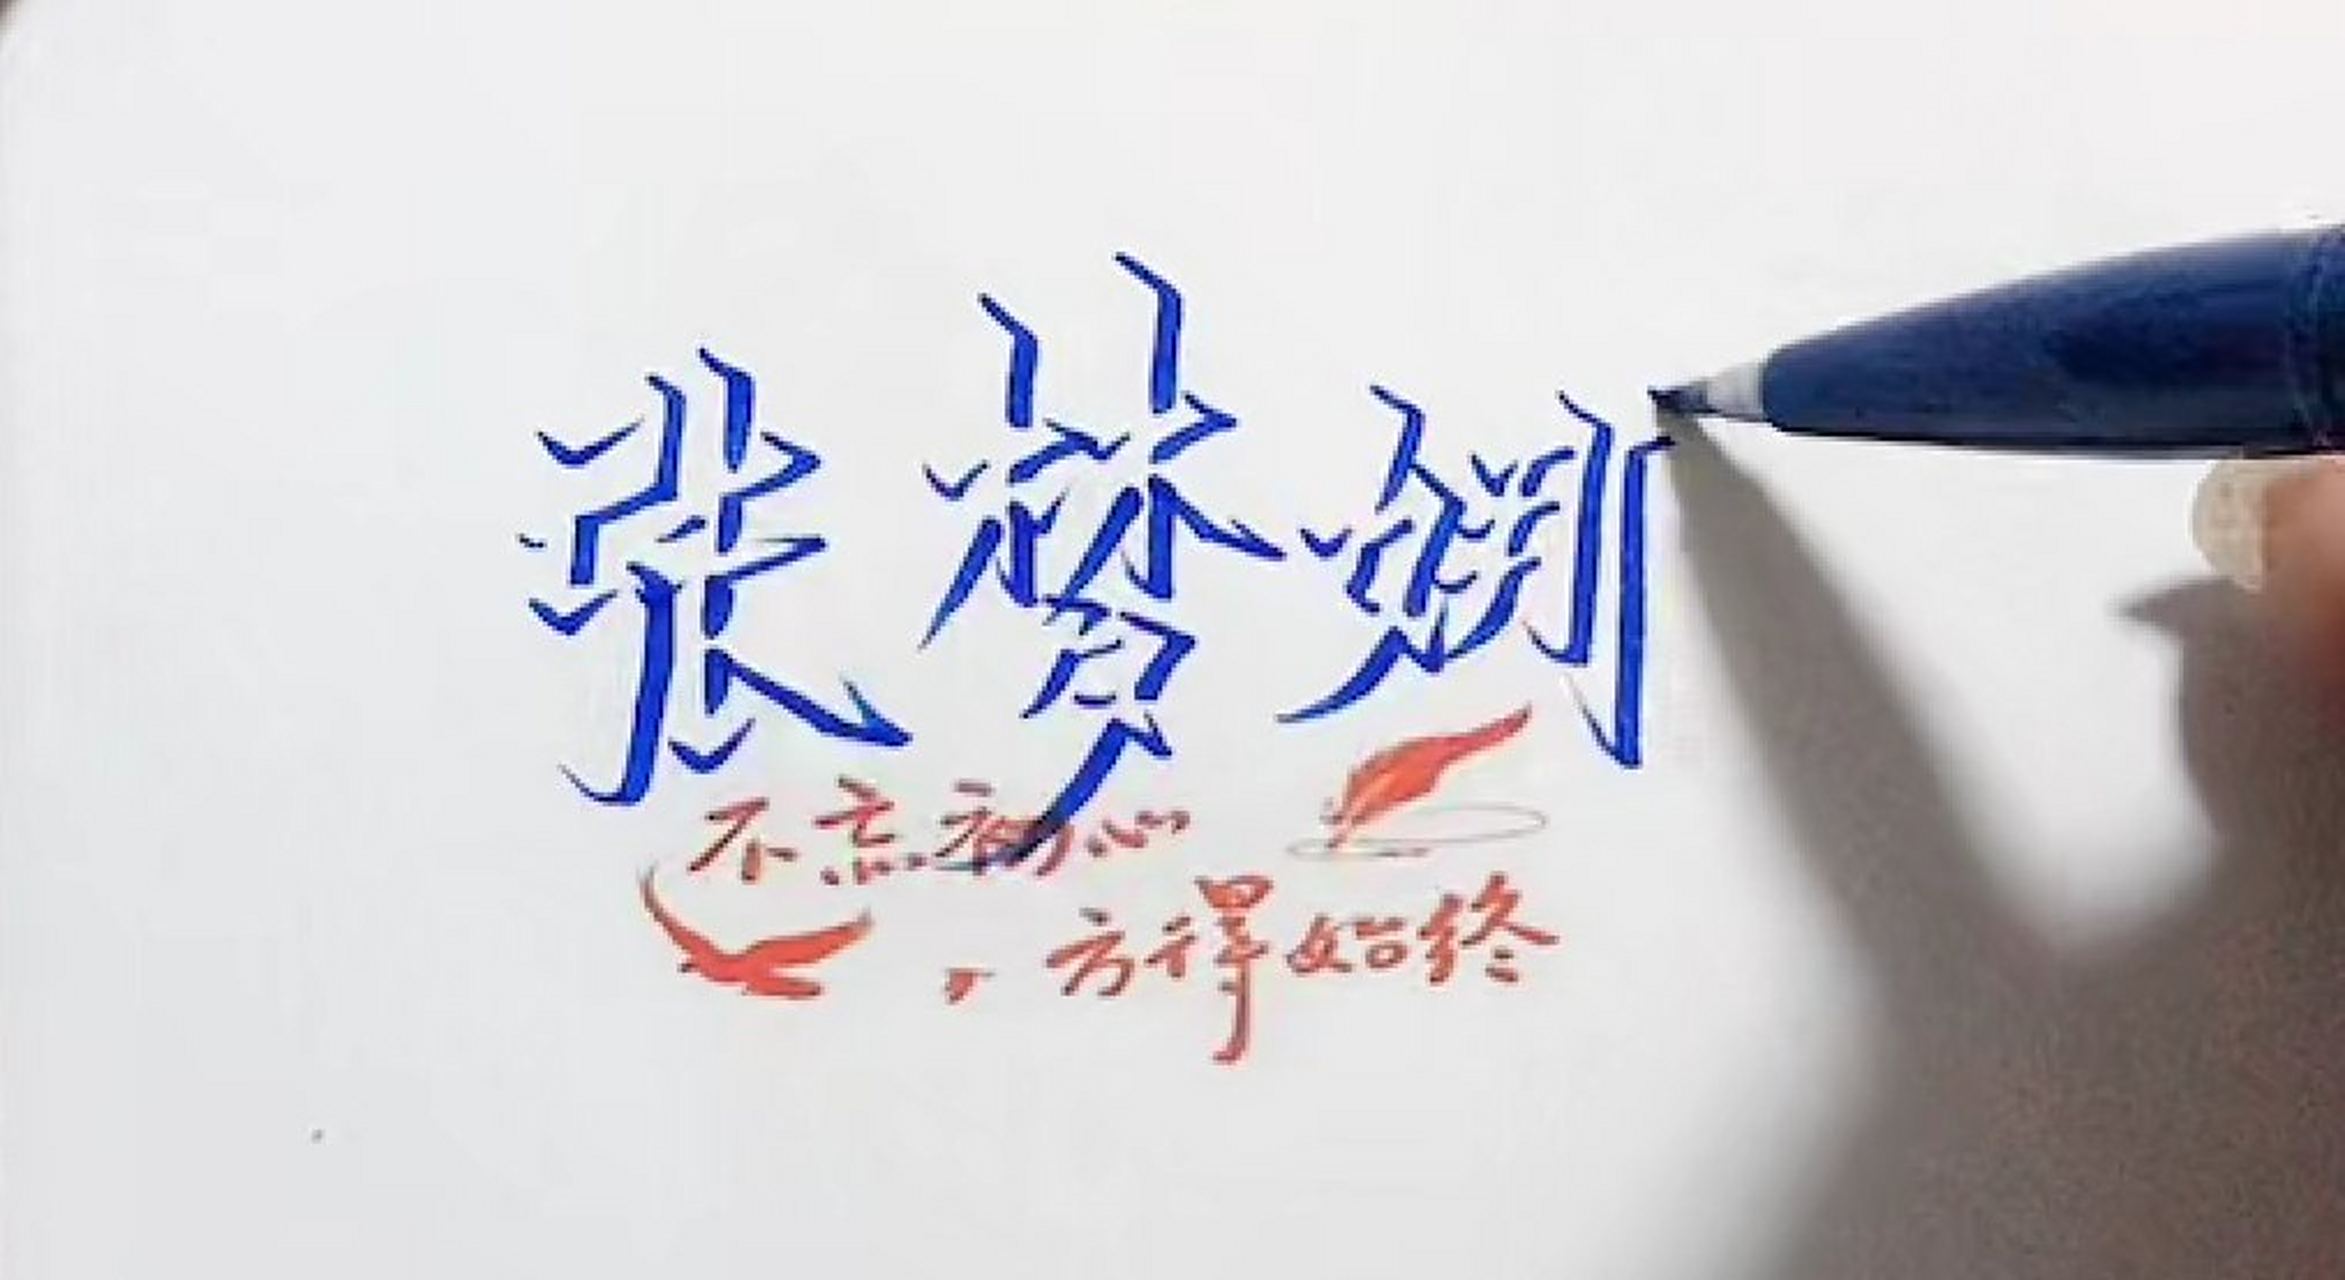 张梦娴
不忘初心
，方得始终